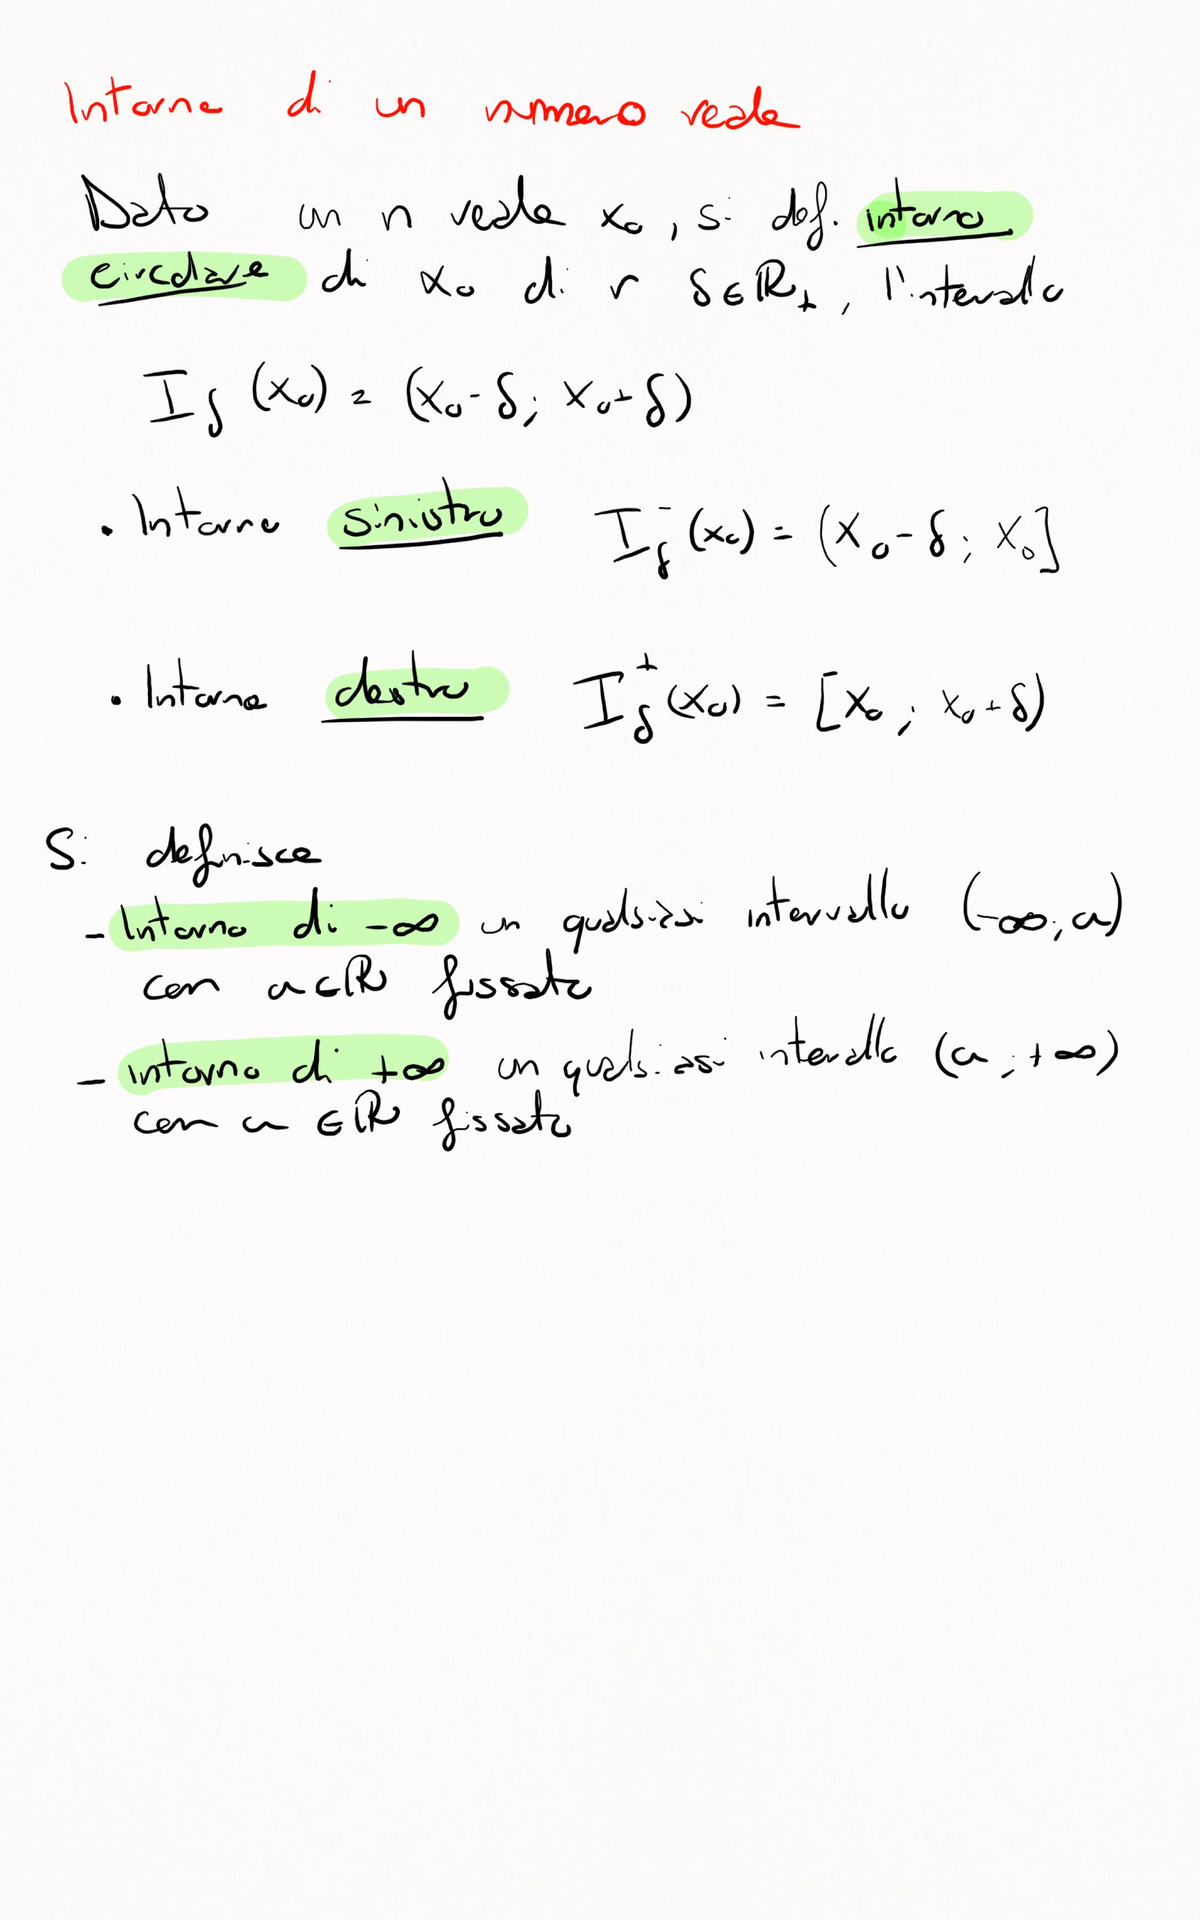 Intorno di un numero reale
Dato un n reale x₀, si def. intorno
circolare di x₀ di r δ∈ℝ₊, l'intervallo
I_δ (x₀) = (x₀-δ; x₀+δ)
• Intorno sinistro I_δ⁻(x₀) = (x₀-δ; x₀]
• Intorno destro I_δ⁺(x₀) = [x₀; x₀+δ)
Si definisce
- Intorno di -∞ un qualsiasi intervallo (-∞; a)
con a∈ℝ fissato
- intorno di +∞ un qualsiasi intervallo (a; +∞)
con a ∈ℝ fissato